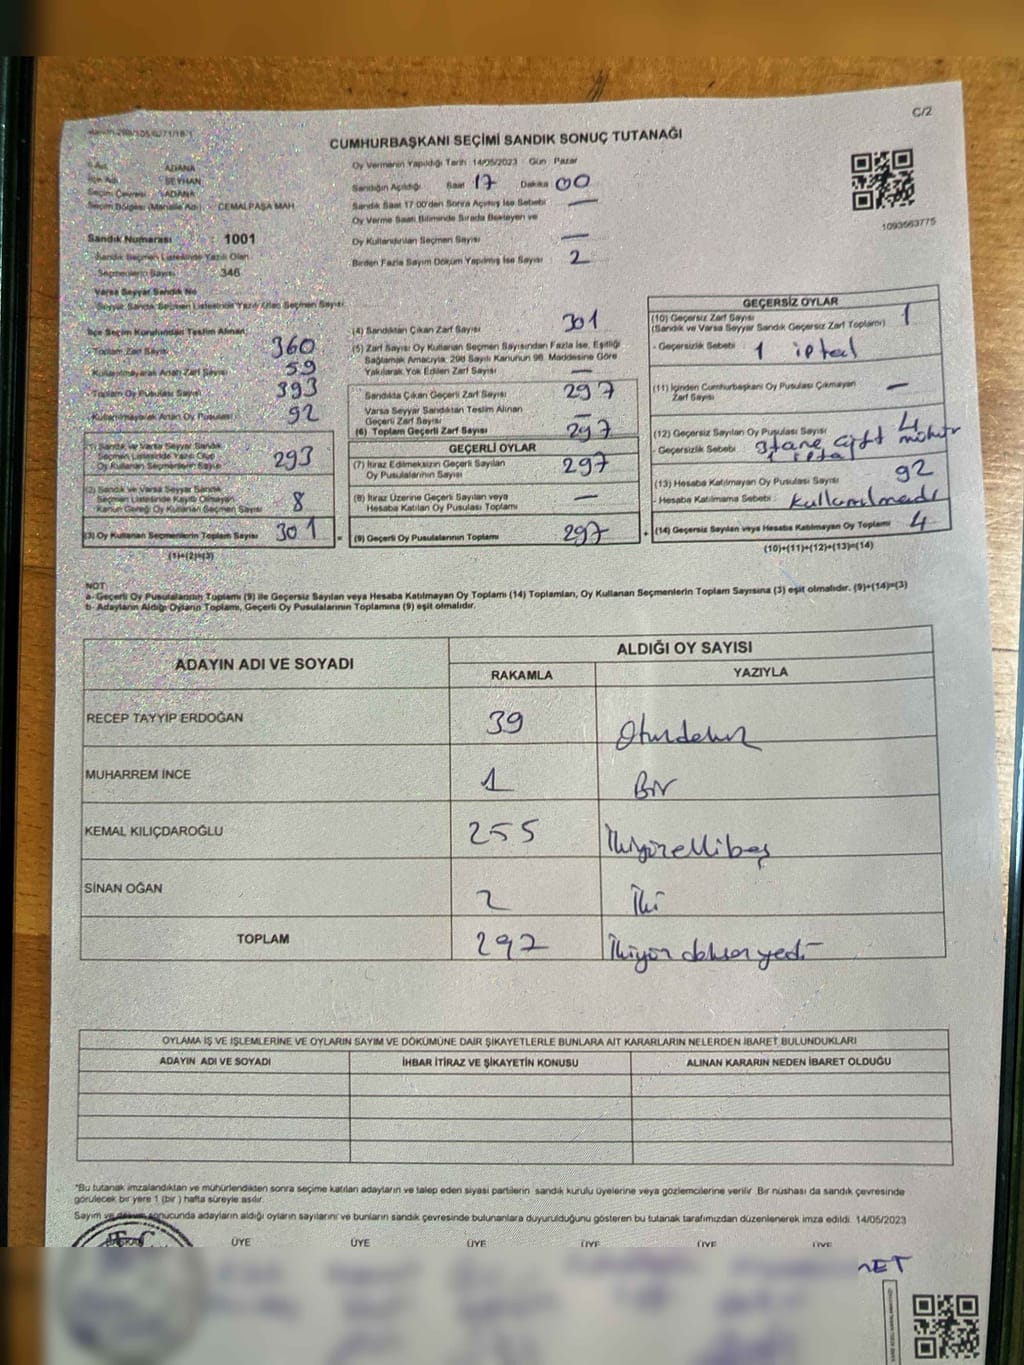 C/2
CUMHURBAŞKANI SEÇİMİ SANDIK SONUÇ TUTANAĞI
ADANA
SEYHAN
Seçim Çevresi : ADANA
Seçim Bölgesi (Mahalle Adı) : CEMALPAŞA MAH
Sandık Numarası : 1001
Sandık Seçmen Listesinde Yazılı Olan
Seçmenlerin Sayısı : 346
Varsa Seyyar Sandık No
Seyyar Sandık Seçmen Listesinde Yazılı Olan Seçmen Sayısı
Oy Vermenin Yapıldığı Tarih 14/05/2023 Gün Pazar
Sandığın Açıldığı Saat 17 Dakika 00
Sandık Saat 17:00'den Sonra Açılmış İse Sebebi : —
Oy Verme Saati Bitiminde Sırada Bekleyen ve
Oy Kullandırılan Seçmen Sayısı : —
Birden Fazla Sayım Döküm Yapılmış İse Sayısı : 2
1093663775
İlçe Seçim Kurulundan Teslim Alınan;
Toplam Zarf Sayısı : 360
Kullanılmayarak Artan Zarf Sayısı : 59
Toplam Oy Pusulası Sayısı : 393
Kullanılmayarak Artan Oy Pusulası : 92
(1) Sandık ve Varsa Seyyar Sandık
Seçmen Listesinde Yazılı Olup
Oy Kullanan Seçmenlerin Sayısı 293
(2) Sandık ve Varsa Seyyar Sandık
Seçmen Listesinde Kayıtlı Olmayan
Kanun Gereği Oy Kullanan Seçmen Sayısı 8
(3) Oy Kullanan Seçmenlerin Toplam Sayısı 301
(1)+(2)=(3)
(4) Sandıktan Çıkan Zarf Sayısı 301
(5) Zarf Sayısı Oy Kullanan Seçmen Sayısından Fazla İse, Eşitliği
Sağlamak Amacıyla; 298 Sayılı Kanunun 98. Maddesine Göre
Yakılarak Yok Edilen Zarf Sayısı —
Sandıkta Çıkan Geçerli Zarf Sayısı 297
Varsa Seyyar Sandıktan Teslim Alınan
Geçerli Zarf Sayısı —
(6) Toplam Geçerli Zarf Sayısı 297
GEÇERLİ OYLAR
(7) İtiraz Edilmeksizin Geçerli Sayılan
Oy Pusulalarının Sayısı 297
(8) İtiraz Üzerine Geçerli Sayılan veya
Hesaba Katılan Oy Pusulası Toplamı —
(9) Geçerli Oy Pusulalarının Toplamı 297
GEÇERSİZ OYLAR
(10) Geçersiz Zarf Sayısı
(Sandık ve Varsa Seyyar Sandık Geçersiz Zarf Toplamı) 1
- Geçersizlik Sebebi : 1 iptal
(11) İçinden Cumhurbaşkanı Oy Pusulası Çıkmayan
Zarf Sayısı —
(12) Geçersiz Sayılan Oy Pusulası Sayısı 4
- Geçersizlik Sebebi 3 tane çift mühür
1 iptal
(13) Hesaba Katılmayan Oy Pusulası Sayısı 92
- Hesaba Katılmama Sebebi : kullanılmadı
(14) Geçersiz Sayılan veya Hesaba Katılmayan Oy Toplamı 4
(10)+(11)+(12)+(13)=(14)
NOT
a- Geçerli Oy Pusulalarının Toplamı (9) ile Geçersiz Sayılan veya Hesaba Katılmayan Oy Toplamı (14) Toplamları, Oy Kullanan Seçmenlerin Toplam Sayısına (3) eşit olmalıdır. (9)+(14)=(3)
b- Adayların Aldığı Oyların Toplamı, Geçerli Oy Pusulalarının Toplamına (9) eşit olmalıdır.
ADAYIN ADI VE SOYADI ALDIĞI OY SAYISI
RAKAMLA YAZIYLA
RECEP TAYYİP ERDOĞAN 39 Otuzdokuz
MUHARREM İNCE 1 Bir
KEMAL KILIÇDAROĞLU 255 İkiyüzellibeş
SİNAN OĞAN 2 İki
TOPLAM 297 İkiyüz doksan yedi
OYLAMA İŞ VE İŞLEMLERİNE VE OYLARIN SAYIM VE DÖKÜMÜNE DAİR ŞİKAYETLERLE BUNLARA AİT KARARLARIN NELERDEN İBARET BULUNDUKLARI
ADAYIN ADI VE SOYADI İHBAR İTİRAZ VE ŞİKAYETİN KONUSU ALINAN KARARIN NEDEN İBARET OLDUĞU
*Bu tutanak imzalandıktan ve mühürlendikten sonra seçime katılan adayların ve talep eden siyasi partilerin sandık kurulu üyelerine veya gözlemcilerine verilir. Bir nüshası da sandık çevresinde
görülecek bir yere 1 (bir ) hafta süreyle asılır.
Sayım ve döküm sonucunda adayların aldığı oyların sayılarını ve bunların sandık çevresinde bulunanlara duyurulduğunu gösteren bu tutanak tarafımızdan düzenlenerek imza edildi. 14/05/2023
BAŞKAN ÜYE ÜYE ÜYE ÜYE ÜYE ÜYE